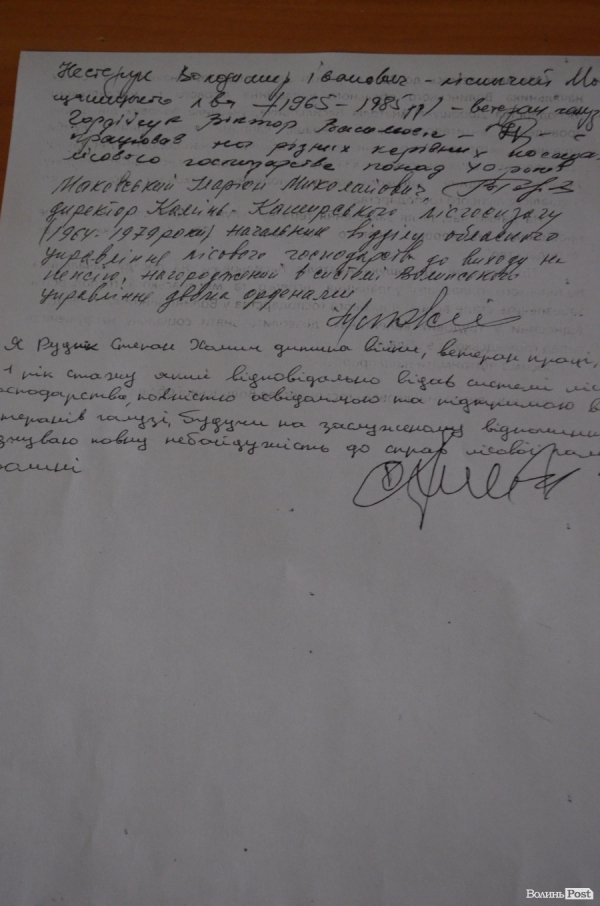 Нестерук Володимир Іванович - лісничий Мо
щаницького л-ва (1965 - 1985рр) - ветеран галуз
Гордійчук Віктор Васильович -
працював на різних керівних посада
лісового господарства понад 40 років
Маковський Маріян Миколайович
директор Камінь-Каширського лісгоспзагу
(1964-1979 роки) начальник відділу обласного
управління лісового господарства до виходу на
пенсію, нагороджений в системі Волинського
управління двома орденами
Я Рудик Степан Хомич дитина війни, ветеран праці,
1 рік стажу який відповідально віддав системі ліс
осподарства, повністю усвідомлюю та підтримую в
етеранів галузі, будучи на заслуженому відпочинк
повну небайдужість до справ лісової гал
олині
ВолиньPost